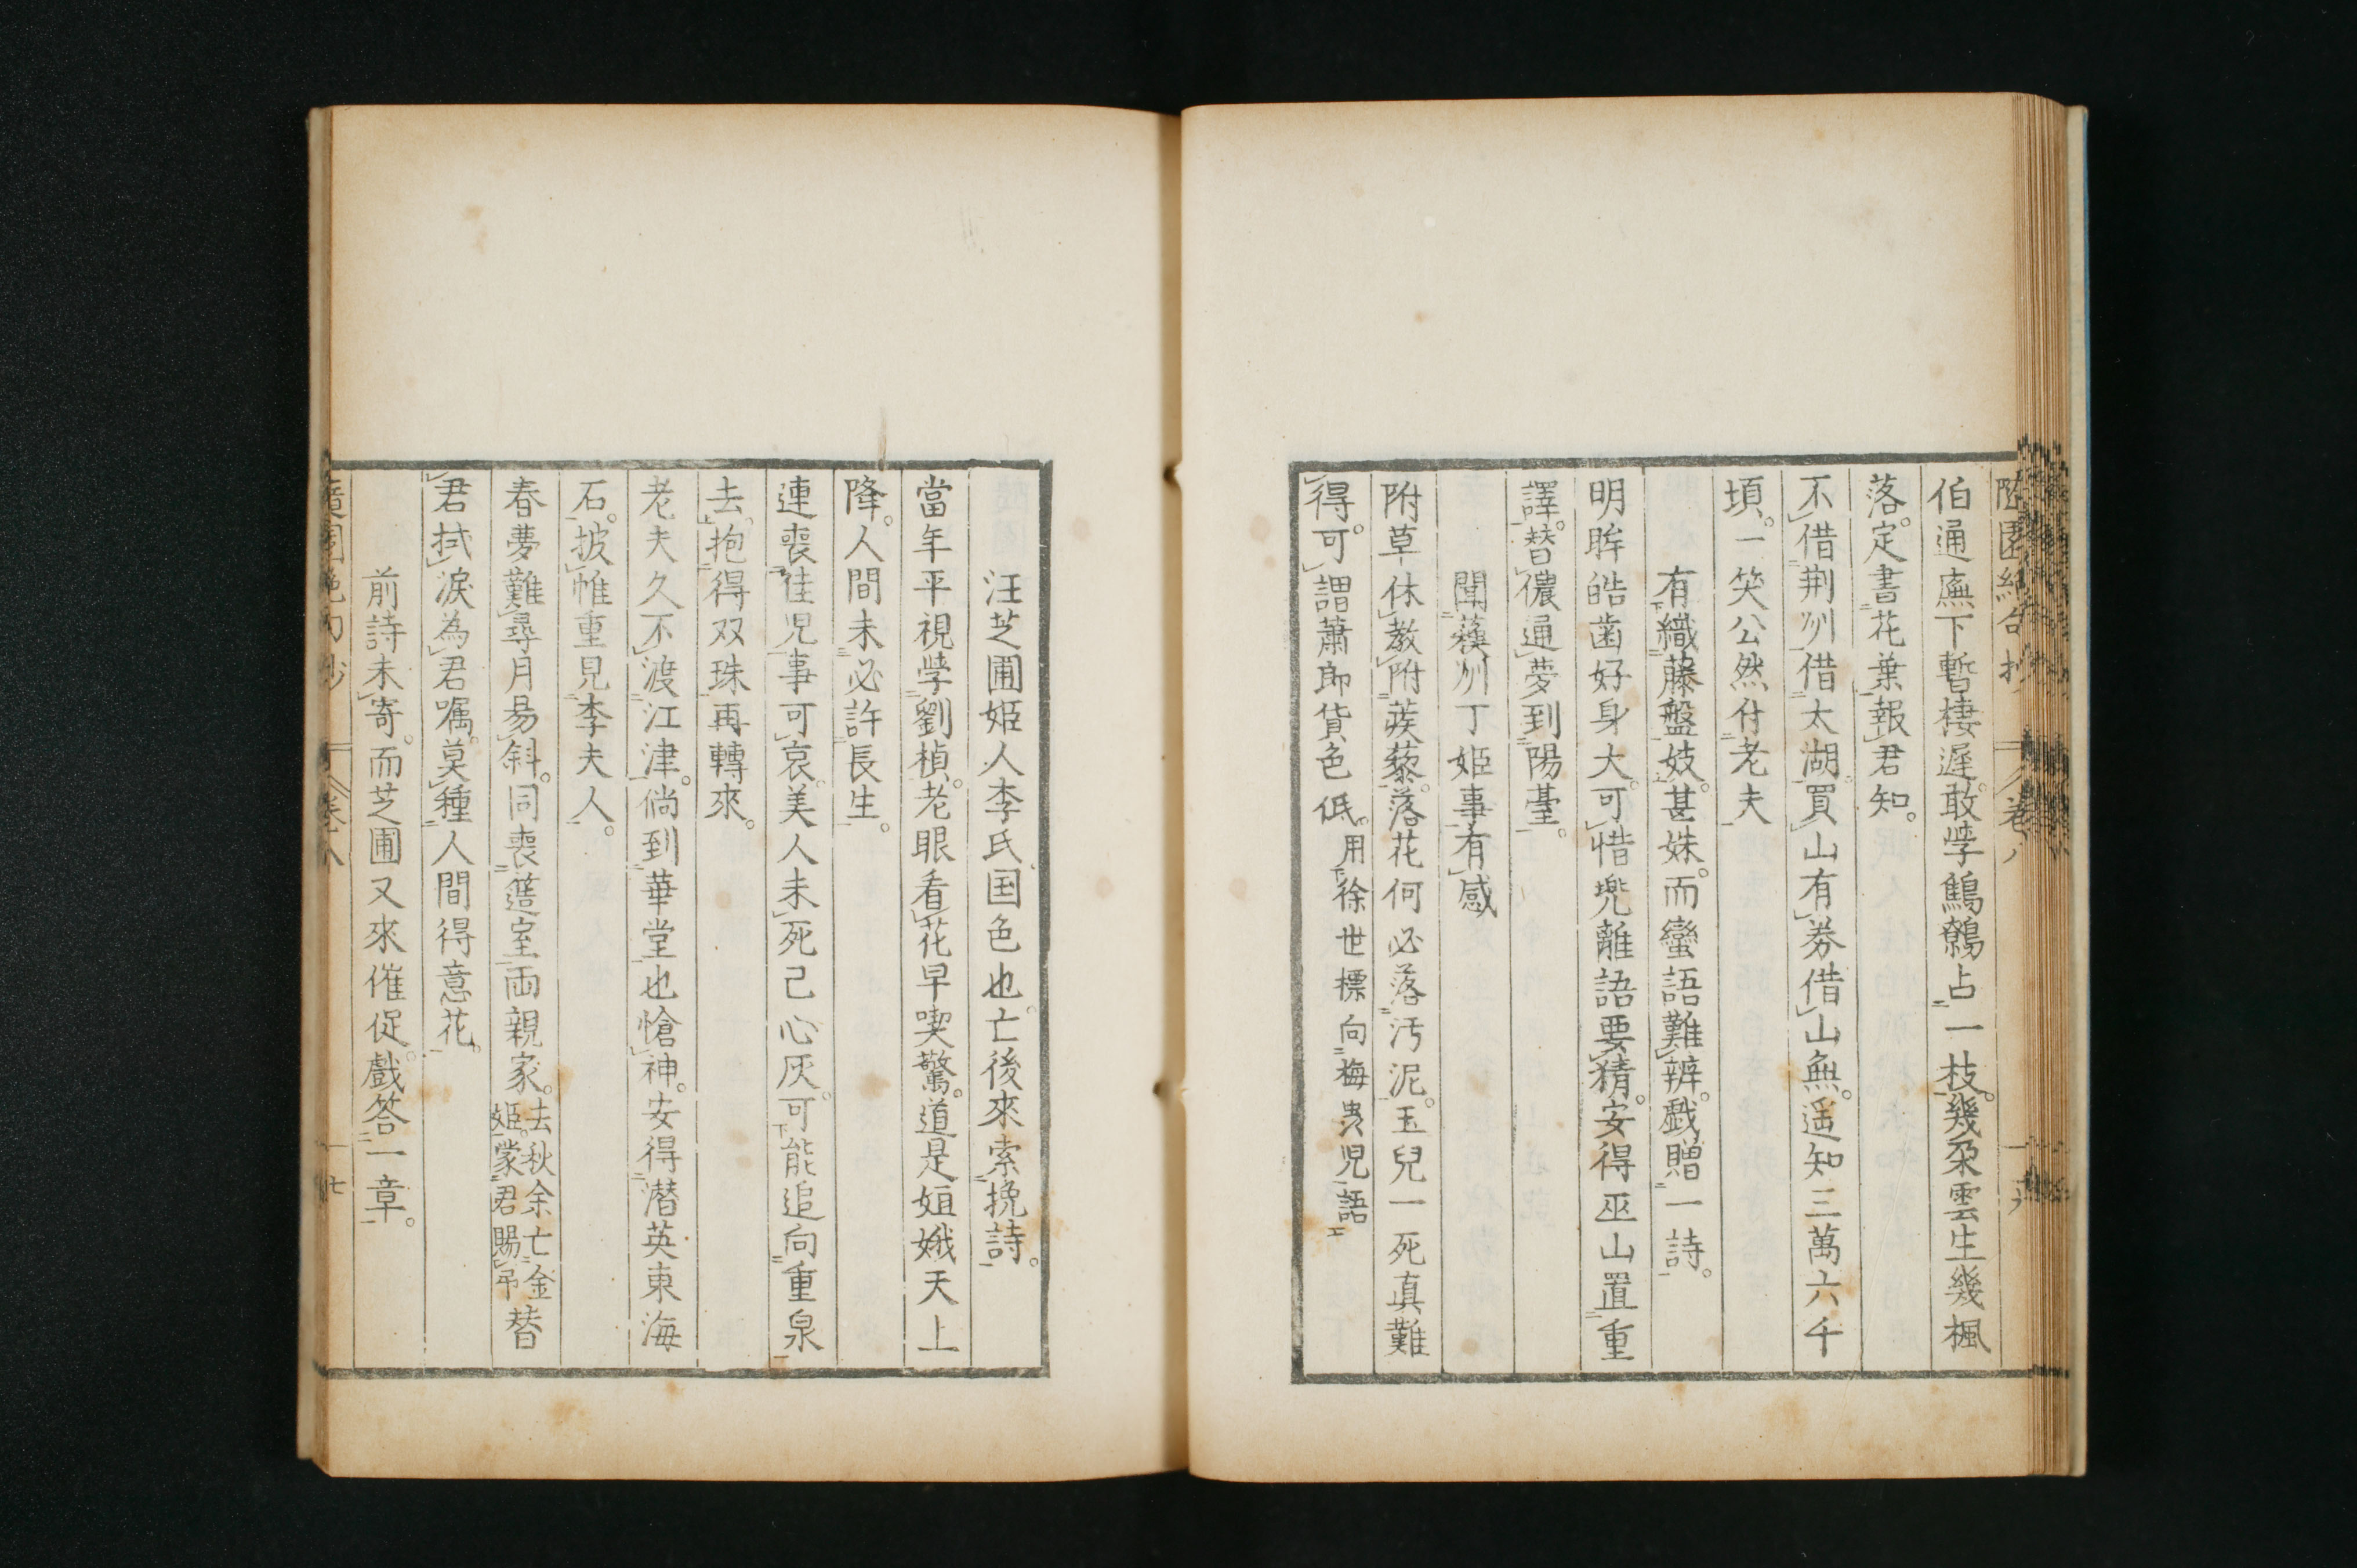 隨園絶句抄 卷八 十六
伯通廡下暫棲遲。敢学鷦鷯占一枝。幾朶雲生幾楓
落。定書花葉報君知。
不借荆州借太湖。買山有券借山無。遥知三萬六千
頃。一笑公然付老夫
有織藤盤妓。甚姝。而蠻語難辨。戯贈一詩。
明眸皓齒好身大。可惜兜離語要猜。安得巫山置重
譯。替儂通夢到陽臺。
聞蘓州丁姬事有感
附草休教附蒺藜。落花何必落汚泥。玉兒一死真難
得。可謂蕭郎貨色低。用徐世標向梅虫児語
汪芝圃姬人李氏国色也。亡後來索挽詩。
當年平視学劉楨。老眼看花早喫驚。道是姮娥天上
降。人間未必許長生。
連喪佳児事可哀。美人未死己心灰。可能追向重泉
去。抱得双珠再轉來。
老夫久不渡江津。倘到華堂也愴神。安得潜英東海
石。披帷重見李夫人。
春夢難尋月易斜。同喪簉室両親家。去秋余亡金姬。蒙君賜弔替
君拭淚為君嘱。莫種人間得意花。
前詩未寄。而芝圃又來催促。戲答一章。
隨園絶句抄 卷八 十七